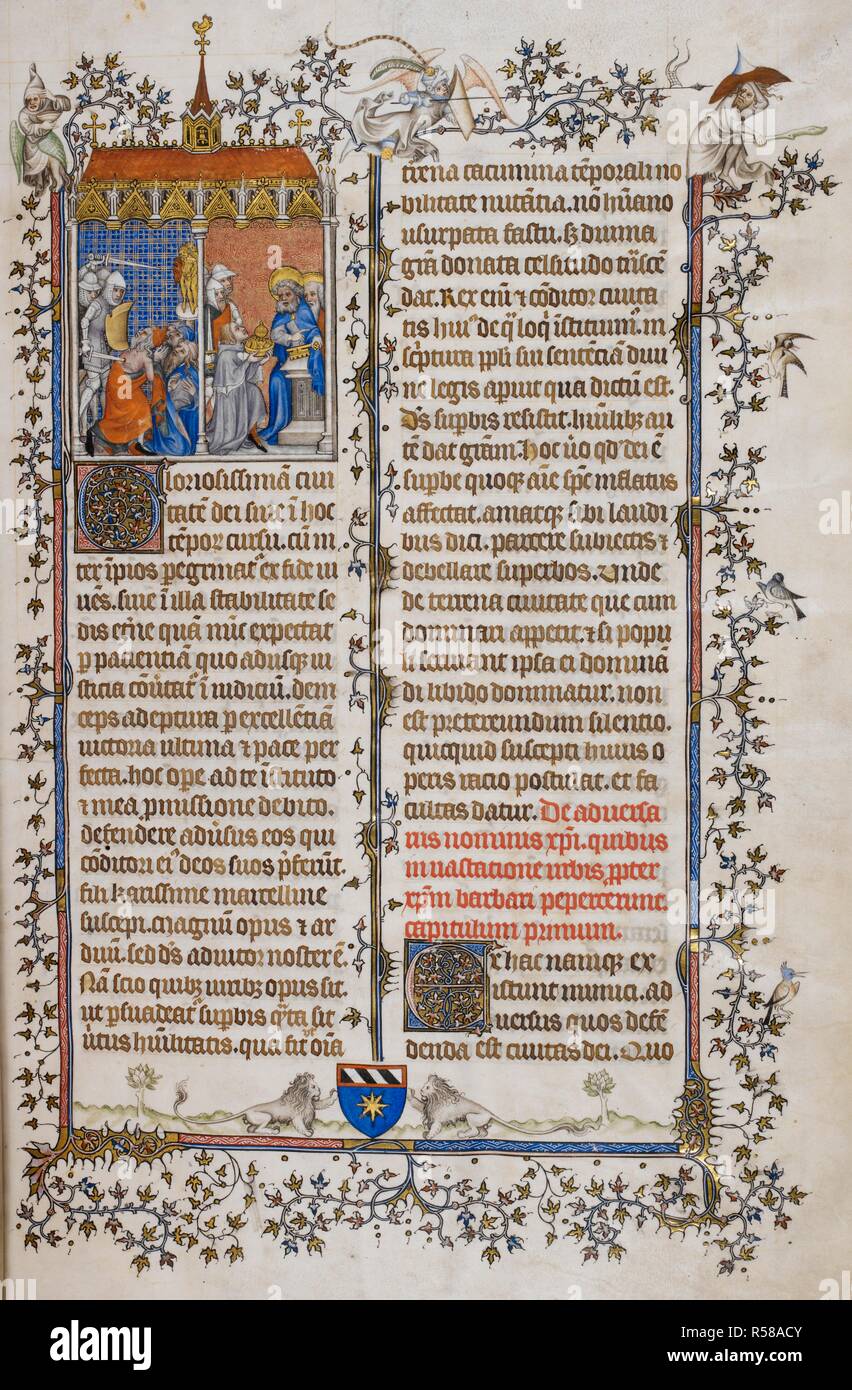 Gloriosissimā ciui
tatē dei siue ī hoc
tēpor cursu. cū in
ter īpios pegrinat' ex fide ui
uēs. siue ī illa stabilitate se
dis et̄ne quā nūc expectat
p patientiā quo adusq̄ iu
sticia cōūtat̄ ī iudiciū. dein
ceps adeptura p excellētiā
uictoria ultima ⁊ pace per
fecta. hoc ope. ad te īstituto
⁊ mea p̄missione debito.
defendere adūsus eos qui
cōditori ei' deos suos p̄ferūt.
fili karissime marcelline
suscepi. Magnū opus ⁊ ar
duū. sed d̄s adiutor noster ē.
Nā scio quibz uiribz opus sit.
ut p̄suadeat' supbis q̄ta sit
uirtus hūilitatis. qua fit ut oīa
trena cacumina tēporali mo
bilitate nutātia. nō hūano
usurpata fastu. sz diuina
grā donata celsitudo trāscē
dat. Rex enī ⁊ cōditor ciuita
tis hui' de q̄ loq̄ īstituim'. in
sc̄ptura ppli sui sentēciā diui
ne legis apuit qua dictū est.
D̄s supbis resistit. hūilibz au
tē dat grām. Hoc ūo qd' dei ē
supbe quoqz aīe sp̄c inflatus
affectat. amatqz sibi laudi
bus dici. parcere subiectis ⁊
debellare superbos. Unde
de terrena ciuitate que cum
dominari appetit. ⁊ si popu
li seruiant ipsa ei dominā
di libido dominatur. non
est pretereundum silentio.
quicquid suscepti huius o
peris racio postulat. et fa
cultas datur. De aduersa
riis nominis xp̄i. quibus
in uastacione urbis ppter
xp̄m barbari pepercerunt.
capitulum primum.
Ex hac namque ex
istunt inimici. ad
uersus quos defē
denda est ciuitas dei. Quo
alamy
Image ID: R58ACY
www.alamy.com